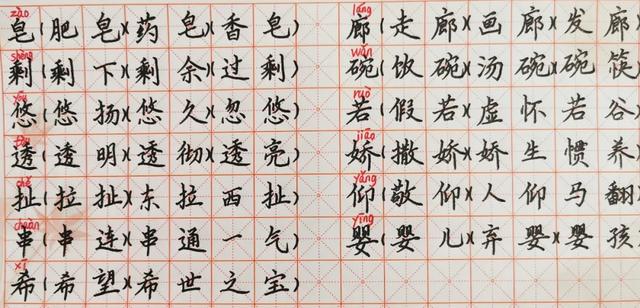 zào
皂(肥皂)(药皂)(香皂)
shèng
剩(剩下)(剩余)(过剩)
yōu
悠(悠扬)(悠久)(忽悠)
tòu
透(透明)(透彻)(透亮)
chě
扯(拉扯)(东拉西扯)
chuàn
串(串连)(串通一气)
xī
希(希望)(希世之宝)
láng
廊(走廊)(画廊)(发廊
wǎn
碗(饭碗)(汤碗)(碗筷
ruò
若(假若)(虚怀若谷
jiāo
娇(撒娇)(娇生惯养
yǎng
仰(敬仰)(人仰马翻
yīng
婴(婴儿)(弃婴)(婴孩